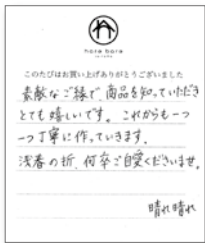 hare hare
このたびはお買い上げありがとうございました
素敵なご縁で、商品を知っていただき
とても嬉しいです。これからも一つ
一つ丁寧に作っていきます。
浅春の折、何卒ご自愛くださいませ。
晴れ晴れ